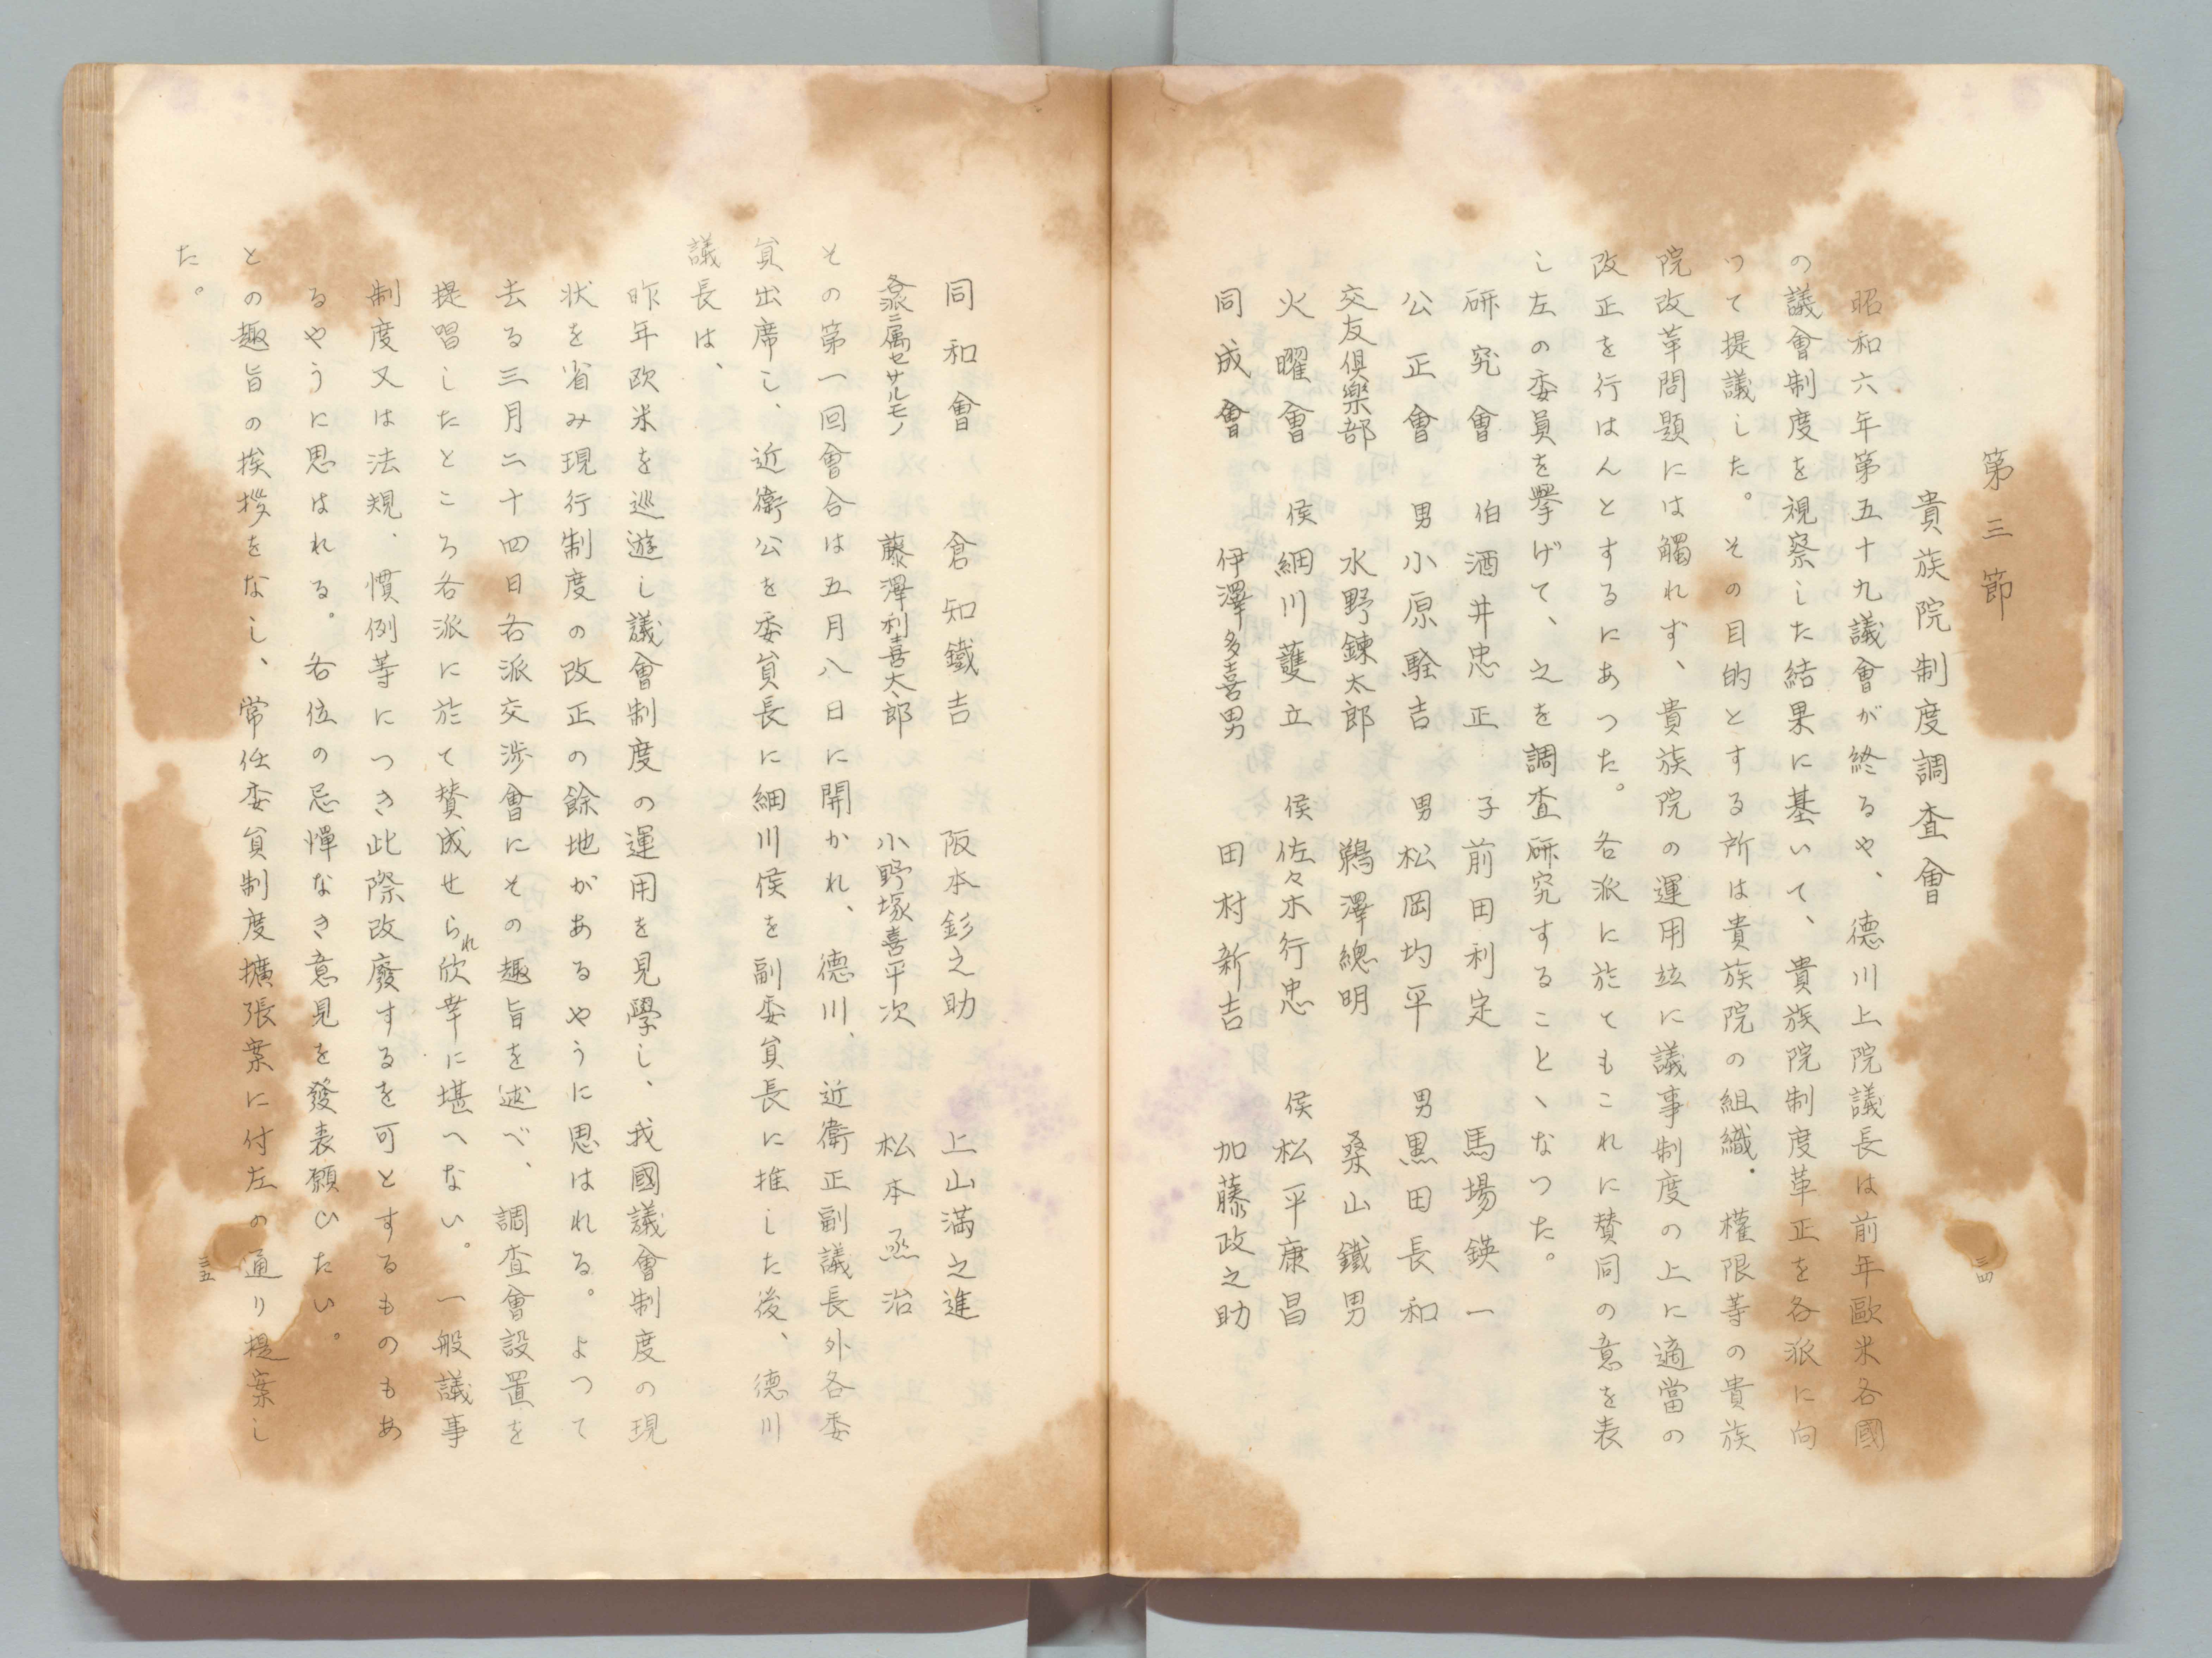 第三節
貴族院制度調査會
昭和六年第五十九議會が終るや、德川上院議長は前年歐米各國
の議會制度を視察した結果に基いて、貴族院制度革正を各派に向
つて提議した。その目的とする所は貴族院の組織、權限等の貴族
院改革問題には觸れず、貴族院の運用竝に議事制度の上に適當の
改正を行はんとするにあつた。各派に於てもこれに賛同の意を表
し左の委員を擧げて、之を調査研究することゝなつた。
研究會 伯酒井忠正 子前田利定 馬場鍈一
公正會 男小原駩吉 男松岡均平 男黒田長和
交友倶樂部 水野錬太郎 鵜澤總明 桑山鐵男
火曜會 侯細川護立 侯佐々木行忠 侯松平康昌
同成會 伊澤多喜男 田村新吉 加藤政之助
三四
同和會 倉知鐵吉 阪本釤之助 上山満之進
各派ニ属セサルモノ 藤澤利喜太郎 小野塚喜平次 松本烝治
その第一回會合は五月八日に開かれ、德川、近衛正副議長外各委
員出席し、近衛公を委員長に細川侯を副委員長に推した後、德川
議長は、
昨年欧米を巡遊し議會制度の運用を見學し、我國議會制度の現
状を省み現行制度の改正の餘地があるやうに思はれる。よつて
去る三月二十四日各派交渉會にその趣旨を述べ、調査會設置を
提唱したところ各派に於て賛成せられ欣幸に堪へない。一般議事
制度又は法規、慣例等につき此際改廢するを可とするものもあ
るやうに思はれる。各位の忌憚なき意見を發表願ひたい。
との趣旨の挨拶をなし、常任委員制度擴張案に付左の通り提案し
た。
三五